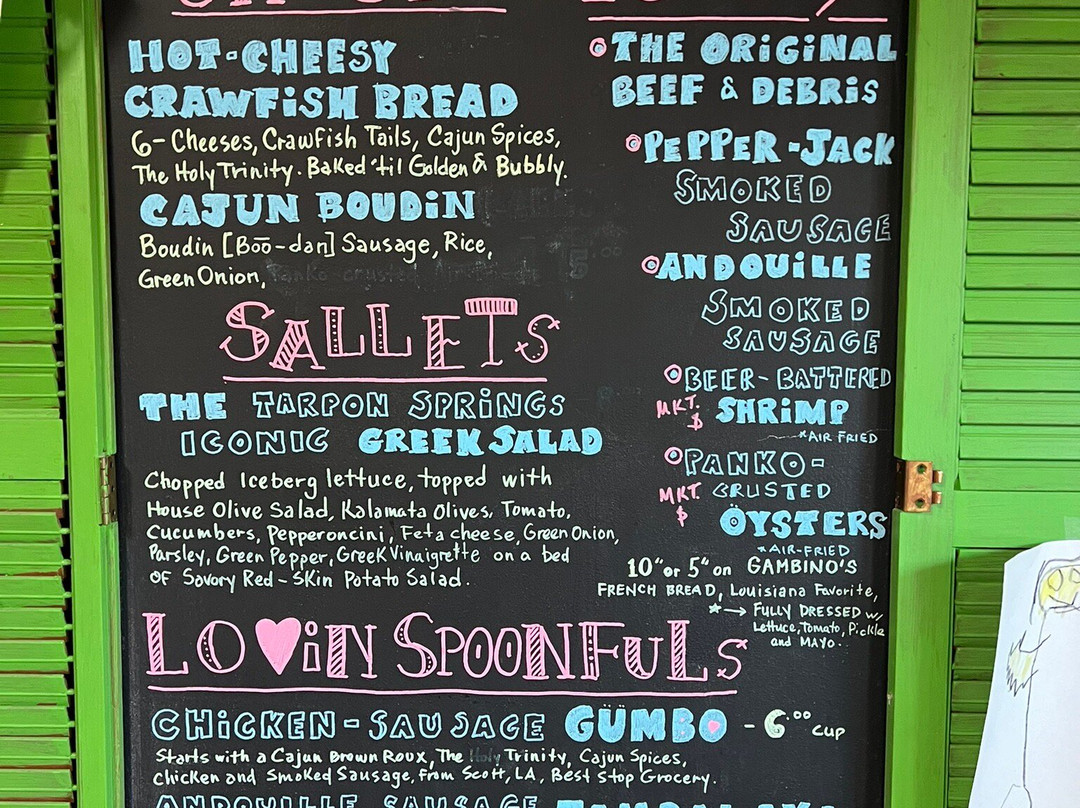 HOT-CHEESY
CRAWFISH BREAD
6-Cheeses, Crawfish Tails, Cajun Spices,
The Holy Trinity. Baked 'til Golden & Bubbly.
CAJUN BOUDIN
Boudin [Boo-dan] Sausage, Rice,
Green Onion,
SALLETS
THE TARPON SPRINGS
ICONIC GREEK SALAD
Chopped Iceberg lettuce, topped with
House Olive Salad, Kalamata Olives, Tomato,
Cucumbers, Pepperoncini, Feta cheese, Green Onion,
Parsley, Green Pepper, Greek Vinaigrette on a bed
OF Savory Red-Skin Potato Salad.
LO♥iN SPOONFULS
CHICKEN-SAUSAGE GUMBO - 6.00 CUP
Starts with a Cajun Brown Roux, The Holy Trinity, Cajun Spices,
Chicken and Smoked Sausage, From Scott, LA, Best Stop Grocery.
ANDOUILLE SAUSAGE
THE ORIGINAL
BEEF & DEBRIS
PEPPER-JACK
SMOKED
SAUSAGE
ANDOUILLE
SMOKED
SAUSAGE
BEER-BATTERED
MKT. $ SHRIMP
*AIR FRIED
PANKO-
MKT. $ CRUSTED
OYSTERS
*AIR-FRIED
10" or 5" on GAMBINO'S
FRENCH BREAD, Louisiana Favorite,
*→ FULLY DRESSED w/
Lettuce, Tomato, Pickle
and MAYO.